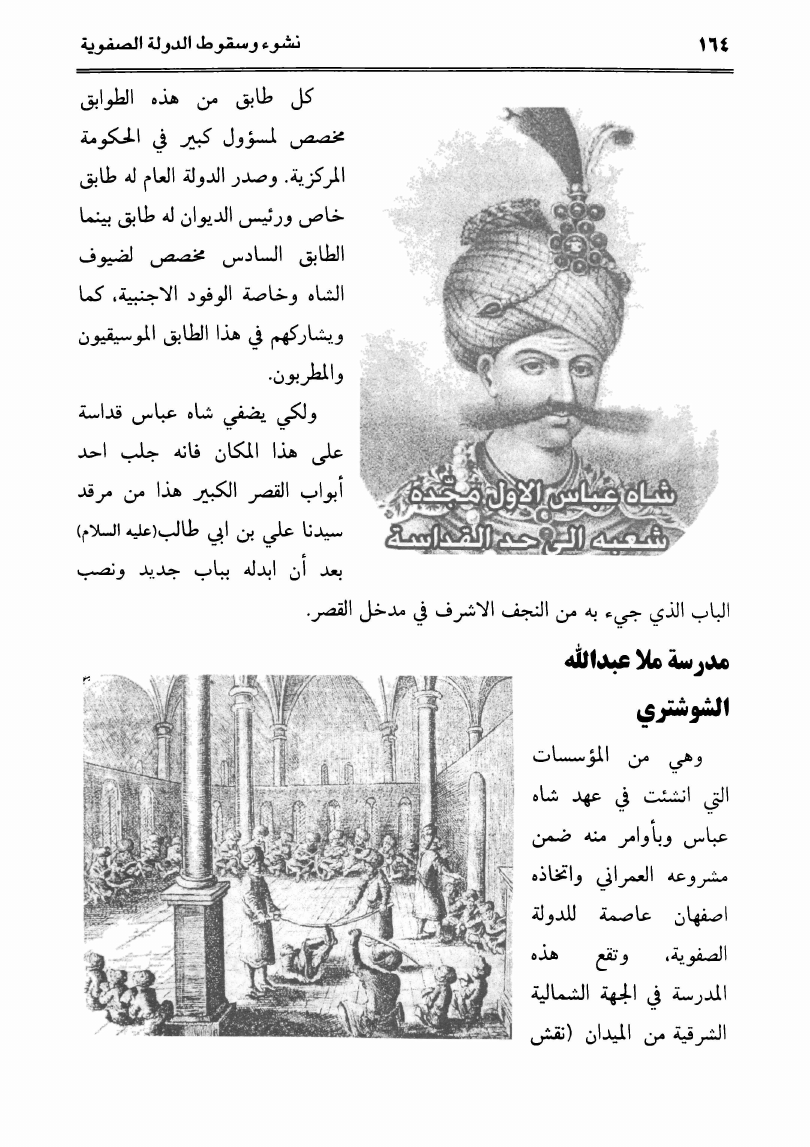 ١٦٤ نشوء وسقوط الدولة الصفوية
كل طابق من هذه الطوابق
مخصص لمسؤول كبير في الحكومة
المركزية. وصدر الدولة العام له طابق
خاص ورئيس الديوان له طابق بينما
الطابق السادس مخصص لضيوف
الشاه وخاصة الوفود الاجنبية، كما
ويشاركهم في هذا الطابق الموسيقيون
والمطربون.
ولكي يضفي شاه عباس قداسة
على هذا المكان فانه جلب احد
أبواب القصر الكبير هذا من مرقد
سيدنا علي بن ابي طالب(عليه السلام)
بعد أن ابدله بباب جديد ونصب
شاه عباس الاول مجّده
شعبه الى حد القداسة
الباب الذي جيء به من النجف الاشرف في مدخل القصر.
مدرسة ملا عبدالله
الشوشتري
وهي من المؤسسات
التي انشئت في عهد شاه
عباس وبأوامر منه ضمن
مشروعه العمراني واتخاذه
اصفهان عاصمة للدولة
الصفوية، وتقع هذه
المدرسة في الجهة الشمالية
الشرقية من الميدان (نقش